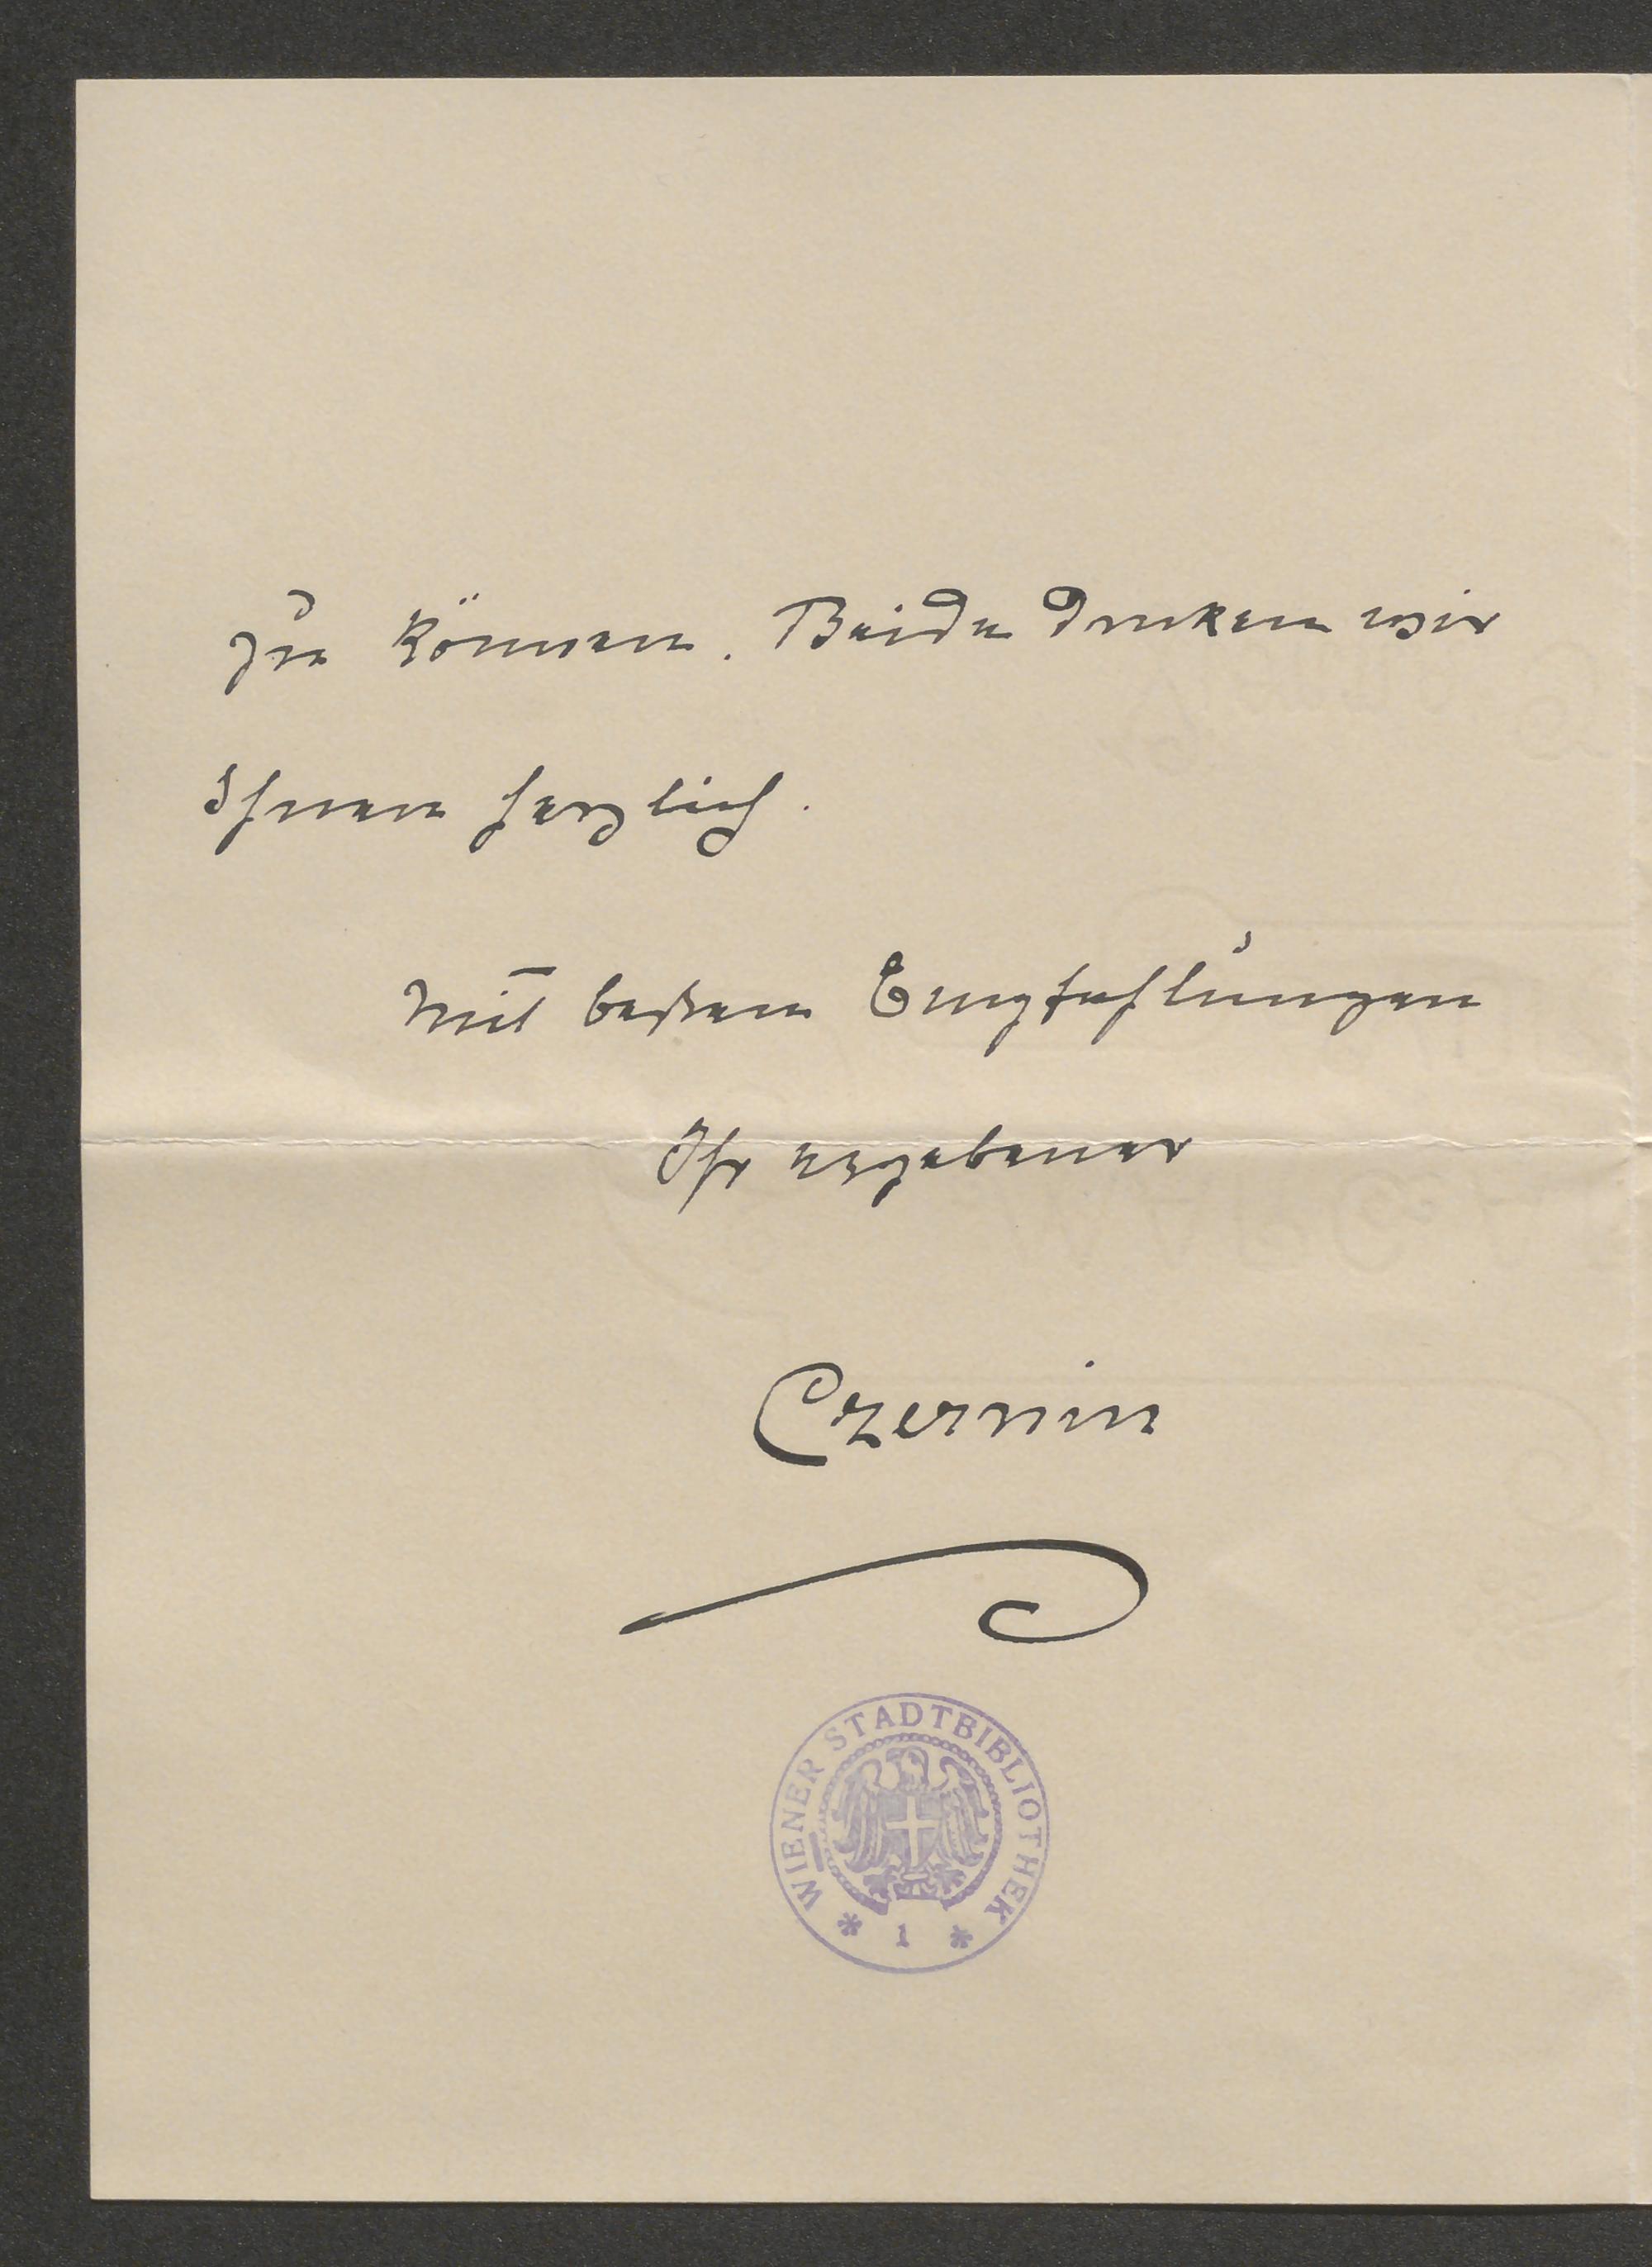 zu können. Beide danken wir
Ihnen herzlich.
Mit besten Empfehlungen
Ihr ergebener
Czernin
WIENER STADTBIBLIOTHEK
* 1 *